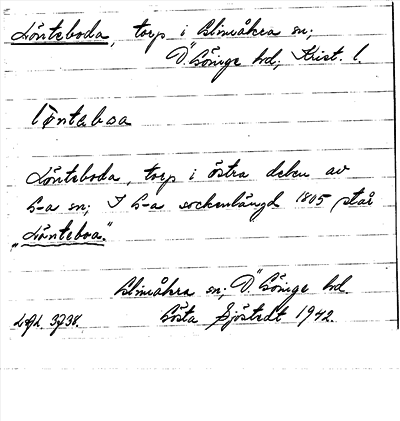 Lönteboda, torp i Glimåkra sn;
Ö. Göinge hd; Krist. l.
lönteboa
Lönteboda, torp i östra delen av
G-a sn; I G-a sockenlängd 1805 står
"Lönteboa."
Glimåkra sn; Ö. Göinge hd.
LAL 3738. Gösta Sjöstedt 1942.